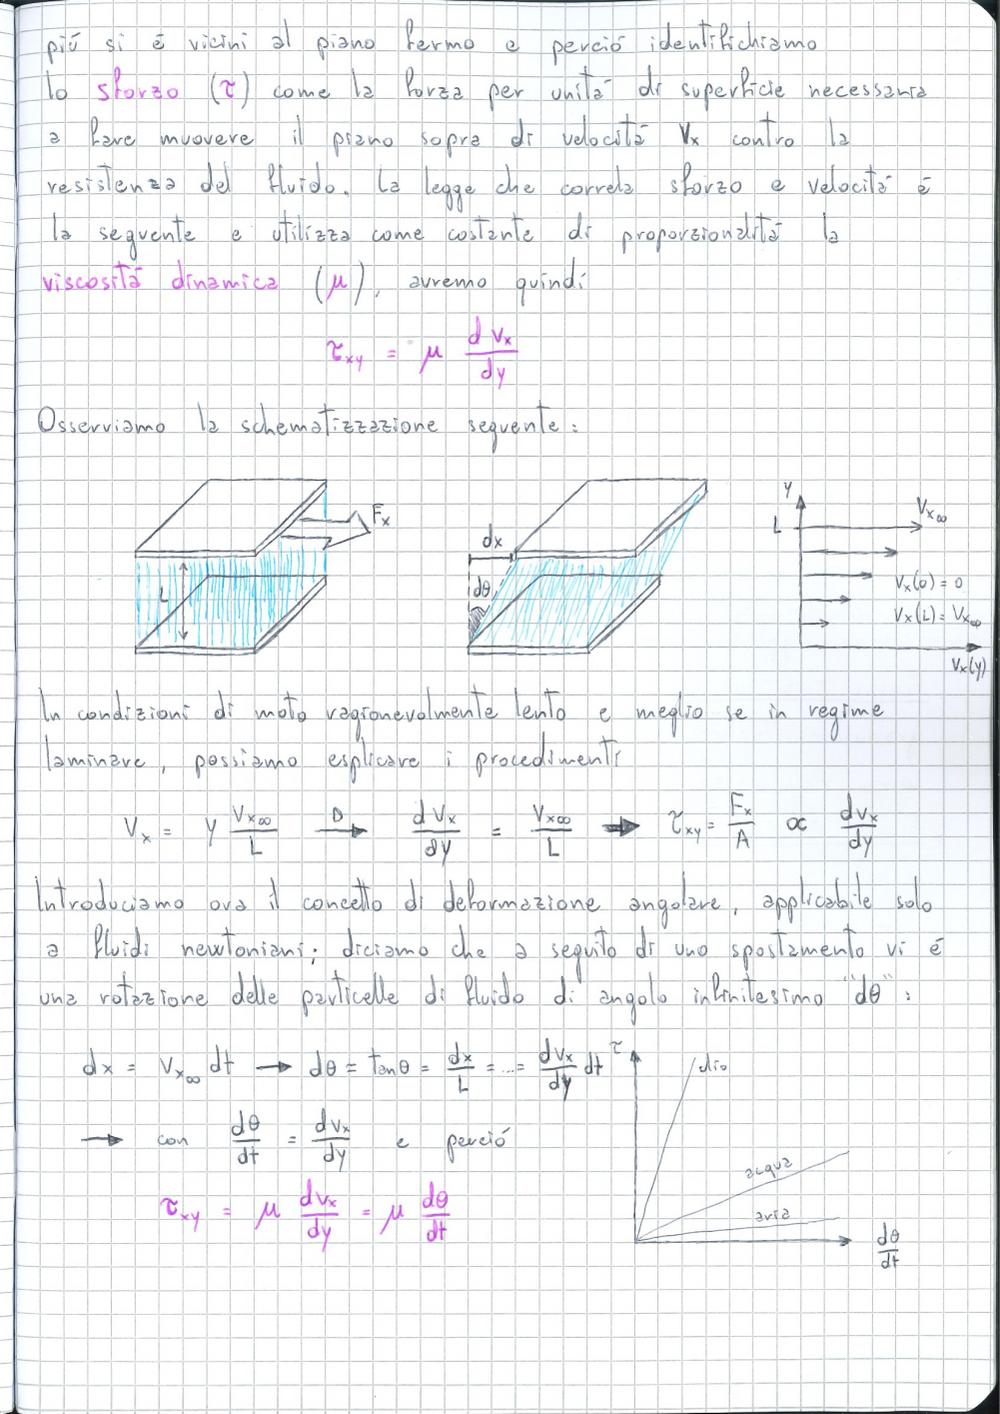 più si è vicini al piano fermo e perciò identifichiamo
lo sforzo (τ) come la forza per unità di superficie necessaria
a fare muovere il piano sopra di velocità Vx contro la
resistenza del fluido. La legge che correla sforzo e velocità è
la seguente e utilizza come costante di proporzionalità la
viscosità dinamica (μ), avremo quindi
τxy = μ dvx/dy
Osserviamo la schematizzazione seguente:
Fx
L
dx
dθ
y
L
Vx∞
Vx(0) = 0
Vx(L) = Vx∞
Vx(y)
In condizioni di moto ragionevolmente lento e meglio se in regime
laminare, possiamo esplicare i procedimenti
Vx = y Vx∞/L D→ dVx/dy = Vx∞/L → τxy = Fx/A ∝ dvx/dy
Introduciamo ora il concetto di deformazione angolare, applicabile solo
a fluidi newtoniani; diciamo che a seguito di uno spostamento vi è
una rotazione delle particelle di fluido di angolo infinitesimo "dθ":
dx = Vx∞ dt → dθ = tanθ = dx/L = ... = dvx/dy dt
→ con dθ/dt = dvx/dy e perciò
τxy = μ dvx/dy = μ dθ/dt
τ
olio
acqua
aria
dθ/dt